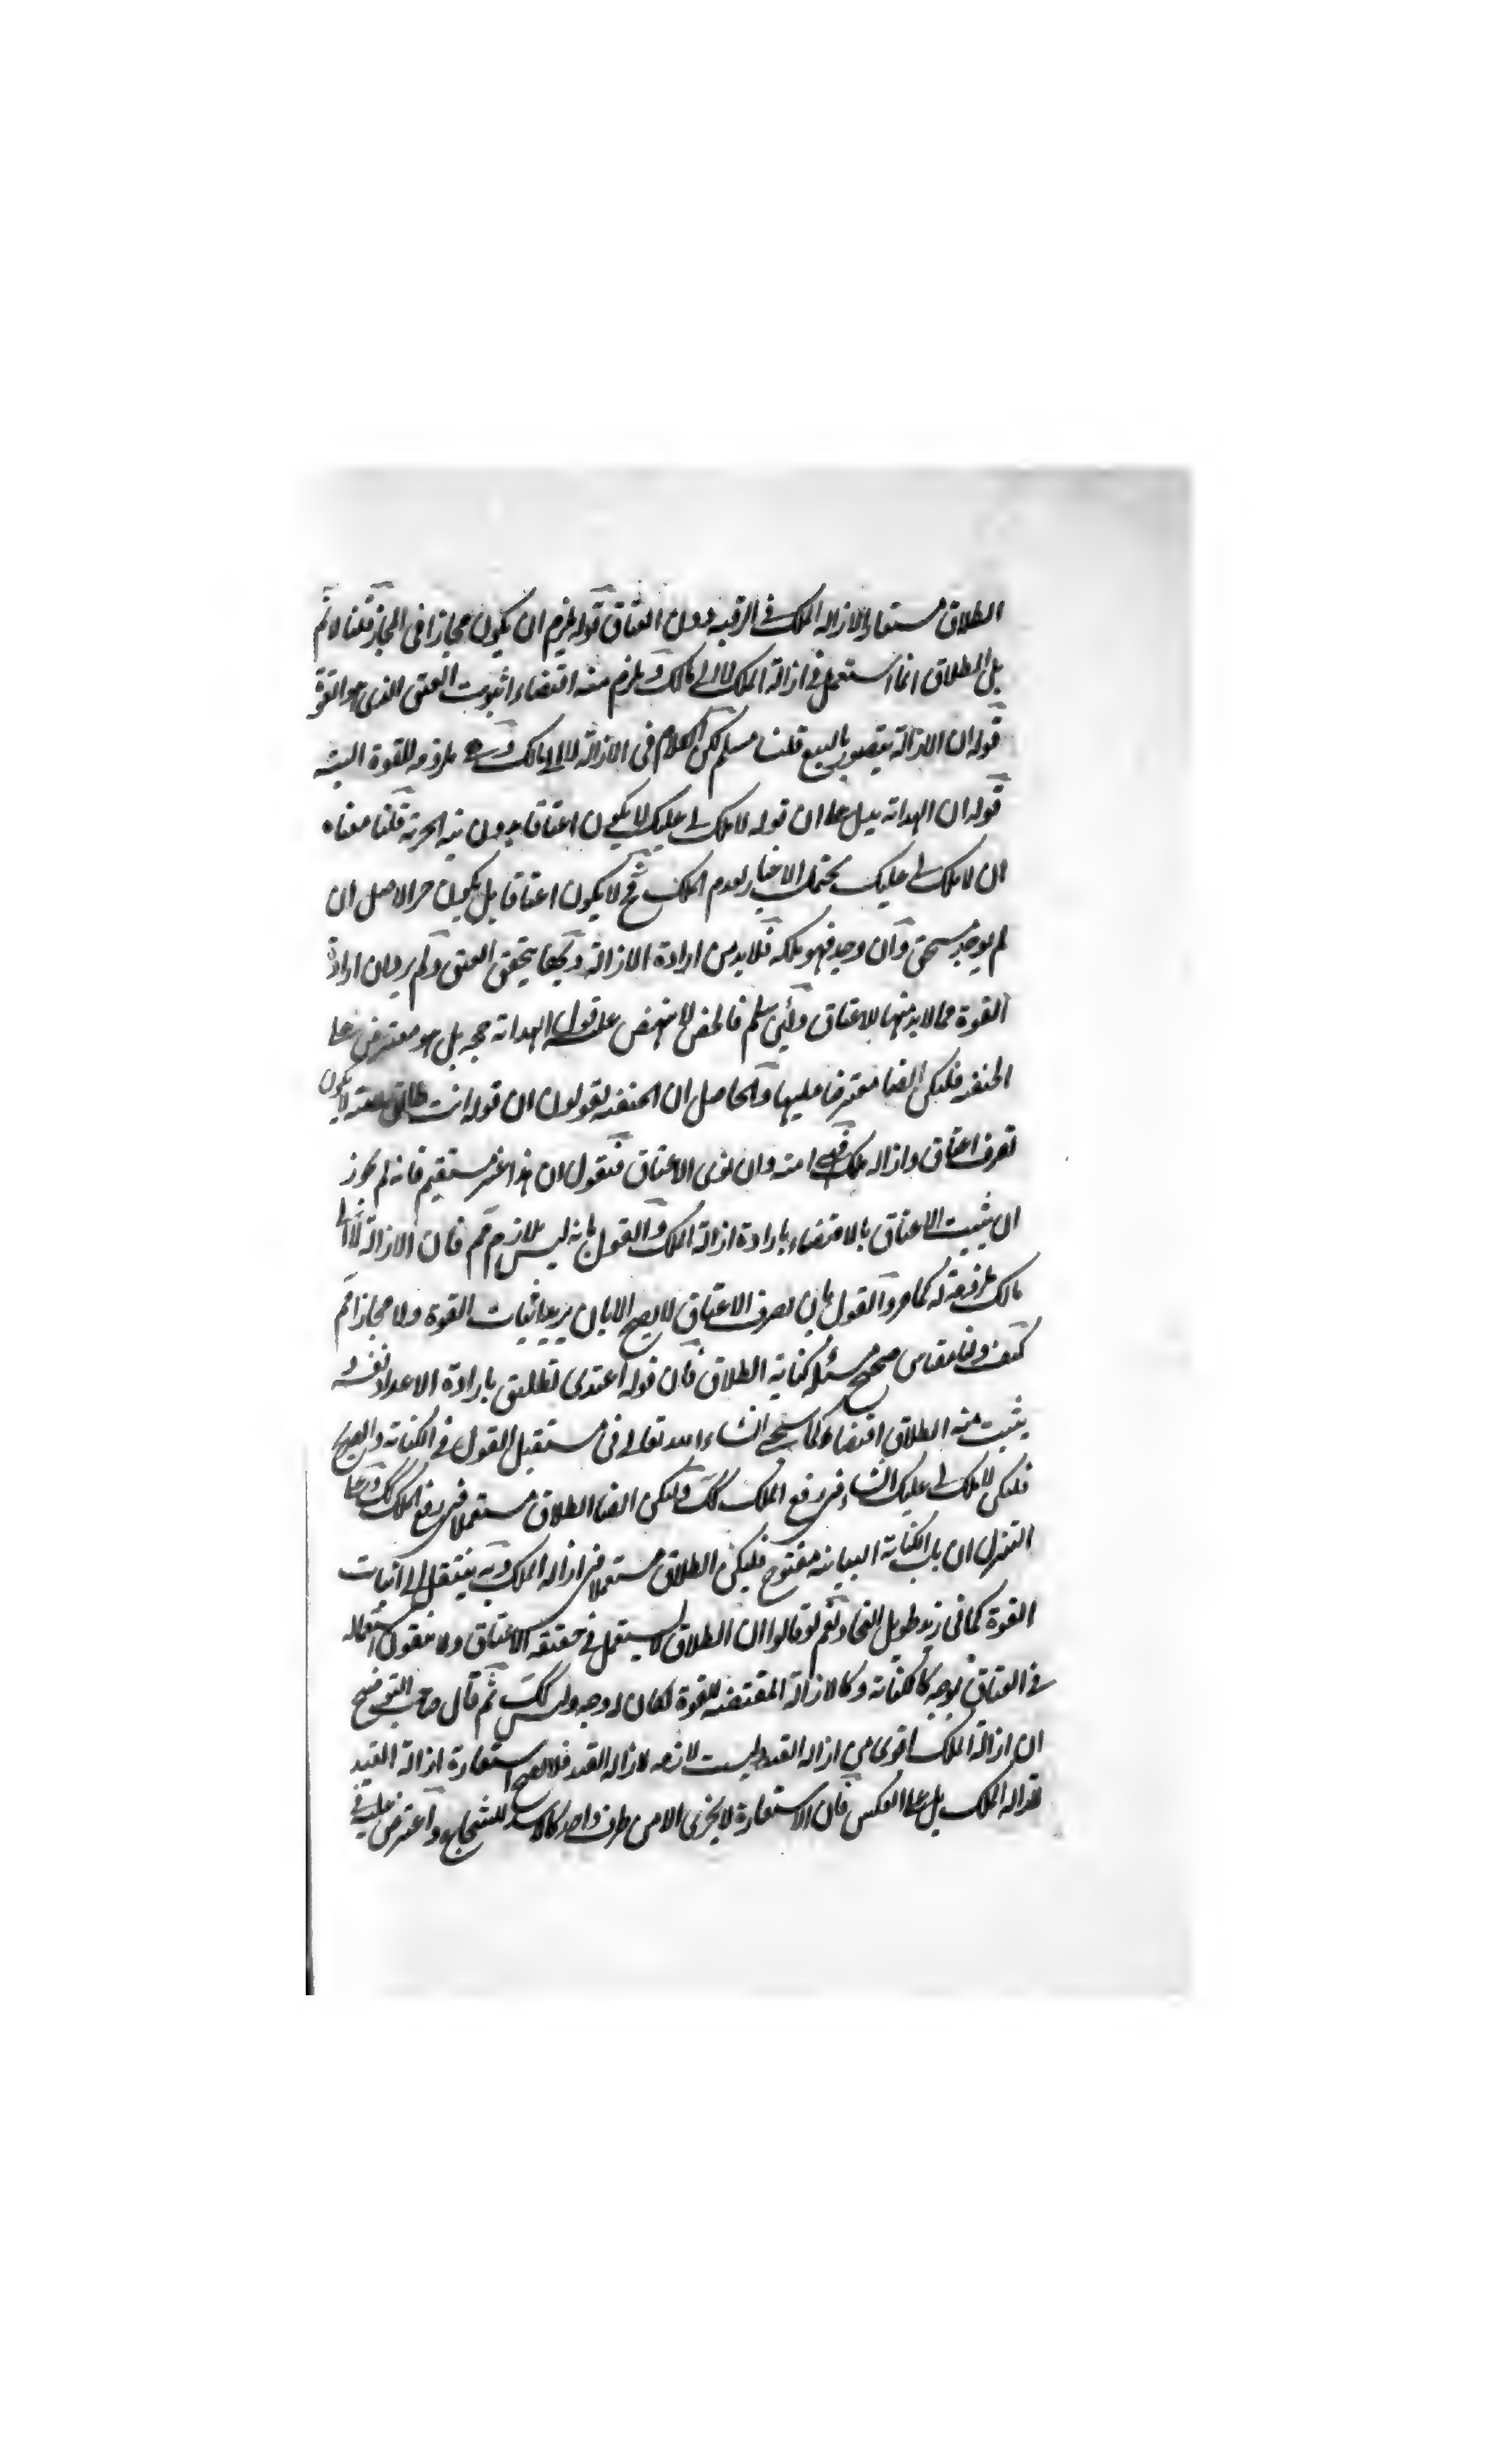 الطلاق مستعار لازالة الملك فى الرقبة دون العتاق قوله يلزم ان يكون مجازا فى المجاز قلنا لا نم
بل الطلاق انما استعمل فى ازالة الملك لا الى مالك ويلزم منه اقتضاء ثبوت العتق الذى هو القوة
قوله ان الازالة يتصور بالبيع قلنا مسلم لكن الكلام فى الازالة لا الى مالك وهى ملزومة للقوة البتة
قوله ان الهداية يدل على ان قوله لا ملك لى عليك لا يكون اعتاقا بدون نية الحرية قلنا معناه
ان لا ملك لى عليك يحتمل الاخبار بعدم الملك فح لا يكون اعتاقا بل يكون حر الاصل ان
لم يوجد مستحق وان وجد فهو ملكه فلا بد من ارادة الازالة وبها يتحقق العتق ولم يرد ان ارادة
القوة مما لا بد منها للاعتاق ولئن سلم فالخصم لا ينهض عليه قول الهداية حجة بل هو معترض على
الحنفية فليكن ايضا معترضا عليها والحاصل ان الحنفية يقولون ان قوله انت طالق لامته لا يكون
تصرف اعتاق وازالة ملك فى امته وان نوى الاعتاق فنقول ان هذا غير مستقيم فانه لم يجوز
ان يثبت الاعتاق بالاقتضاء بارادة ازالة الملك والقول بانه ليس بلازم مم فان الازالة لا الى
مالك ملزومة له كما مر والقول بان تصرف الاعتاق لا يصح الا بان يريد اثبات القوة ولا مجاز مم
كيف ولنا مقاس صحيح مسئلة كناية الطلاق فان قوله اعتدى تطليق بارادة الاعداد نفسه و
يثبت منه الطلاق اقتضاء كما سيجئ انشاء الله تعالى فى مستقبل القول فى الكناية والصريح
فليكن لا ملك لى عليك انشاء فى رفع الملك كك وليكن ايضا الطلاق مستعملا فى رفع الملك كك وعلى
التنزل ان باب الكناية البيانية مفتوح فليكن الطلاق مستعملا فى ازالة الملك وبه ينتقل الى اثبات
القوة كما فى زيد طويل النجاد نعم لو قالوا ان الطلاق لا يستعمل فى حقيقة الاعتاق ولا نقول استعماله
فى العتاق بوجه كالكناية وكالازالة المقتضية للقوة لكان له وجه وليس كك ثم قال صاحب التوضيح
ان ازالة الملك اقوى من ازالة القيد وليست لازمة لازالة القيد فلا يصح استعارة ازالة القيد
لازالة الملك بل على العكس فان الاستعارة لا يجرى الا من طرف واحد كالاسد للشجاع واعترض عليه فى